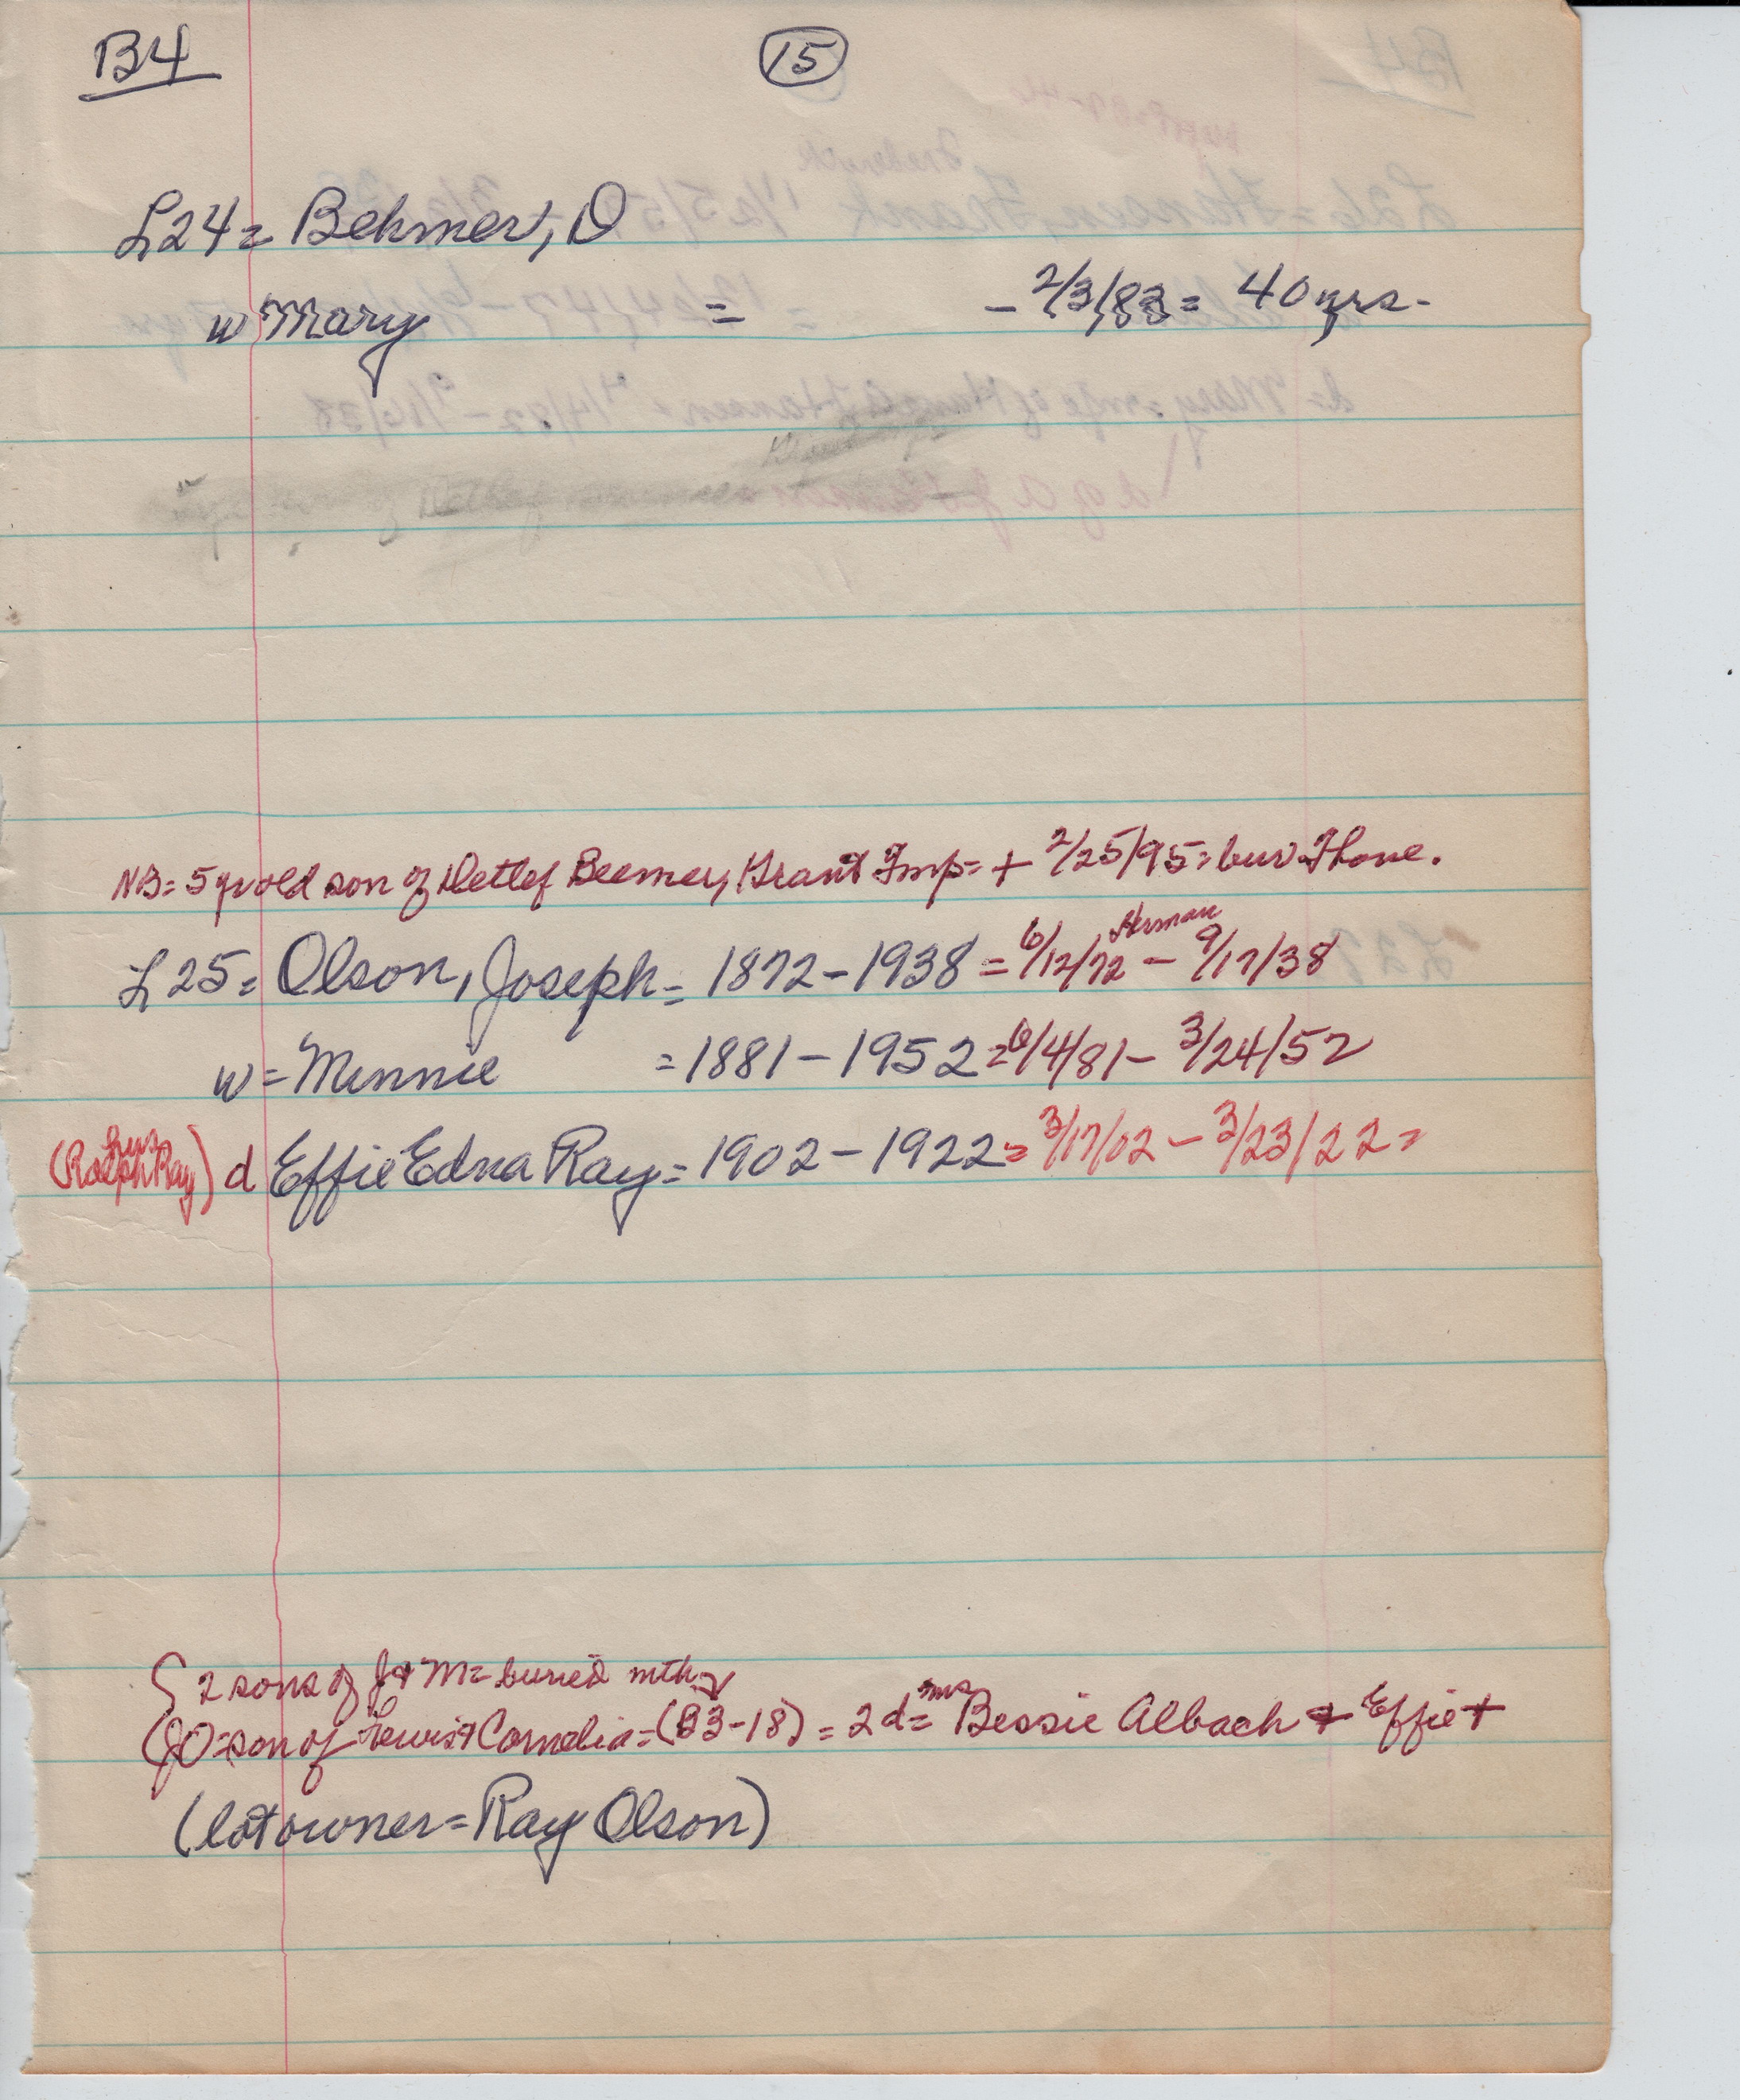 B4
15
L24 = Behmer, D
w Mary = - 2/3/83 = 40 yrs-
NB = 5 yr old son of Detlef Beemer, Grant Twp = + 2/25/95 = bur. Ione.
Herman
L25 = Olson, Joseph = 1872 - 1938 = 6/12/72 - 9/17/38
w = Minnie = 1881 - 1952 = 6/4/81 - 3/24/52
(hus Ralph Ray) d Effie Edna Ray = 1902 - 1922 = 3/17/02 - 3/23/22 =
2 sons of J + M = buried
(JO = son of Lewis + Cornelia = (B3-18) = 2 d = mrs Bessie Albach + Effie +
(lot owner = Ray Olson)